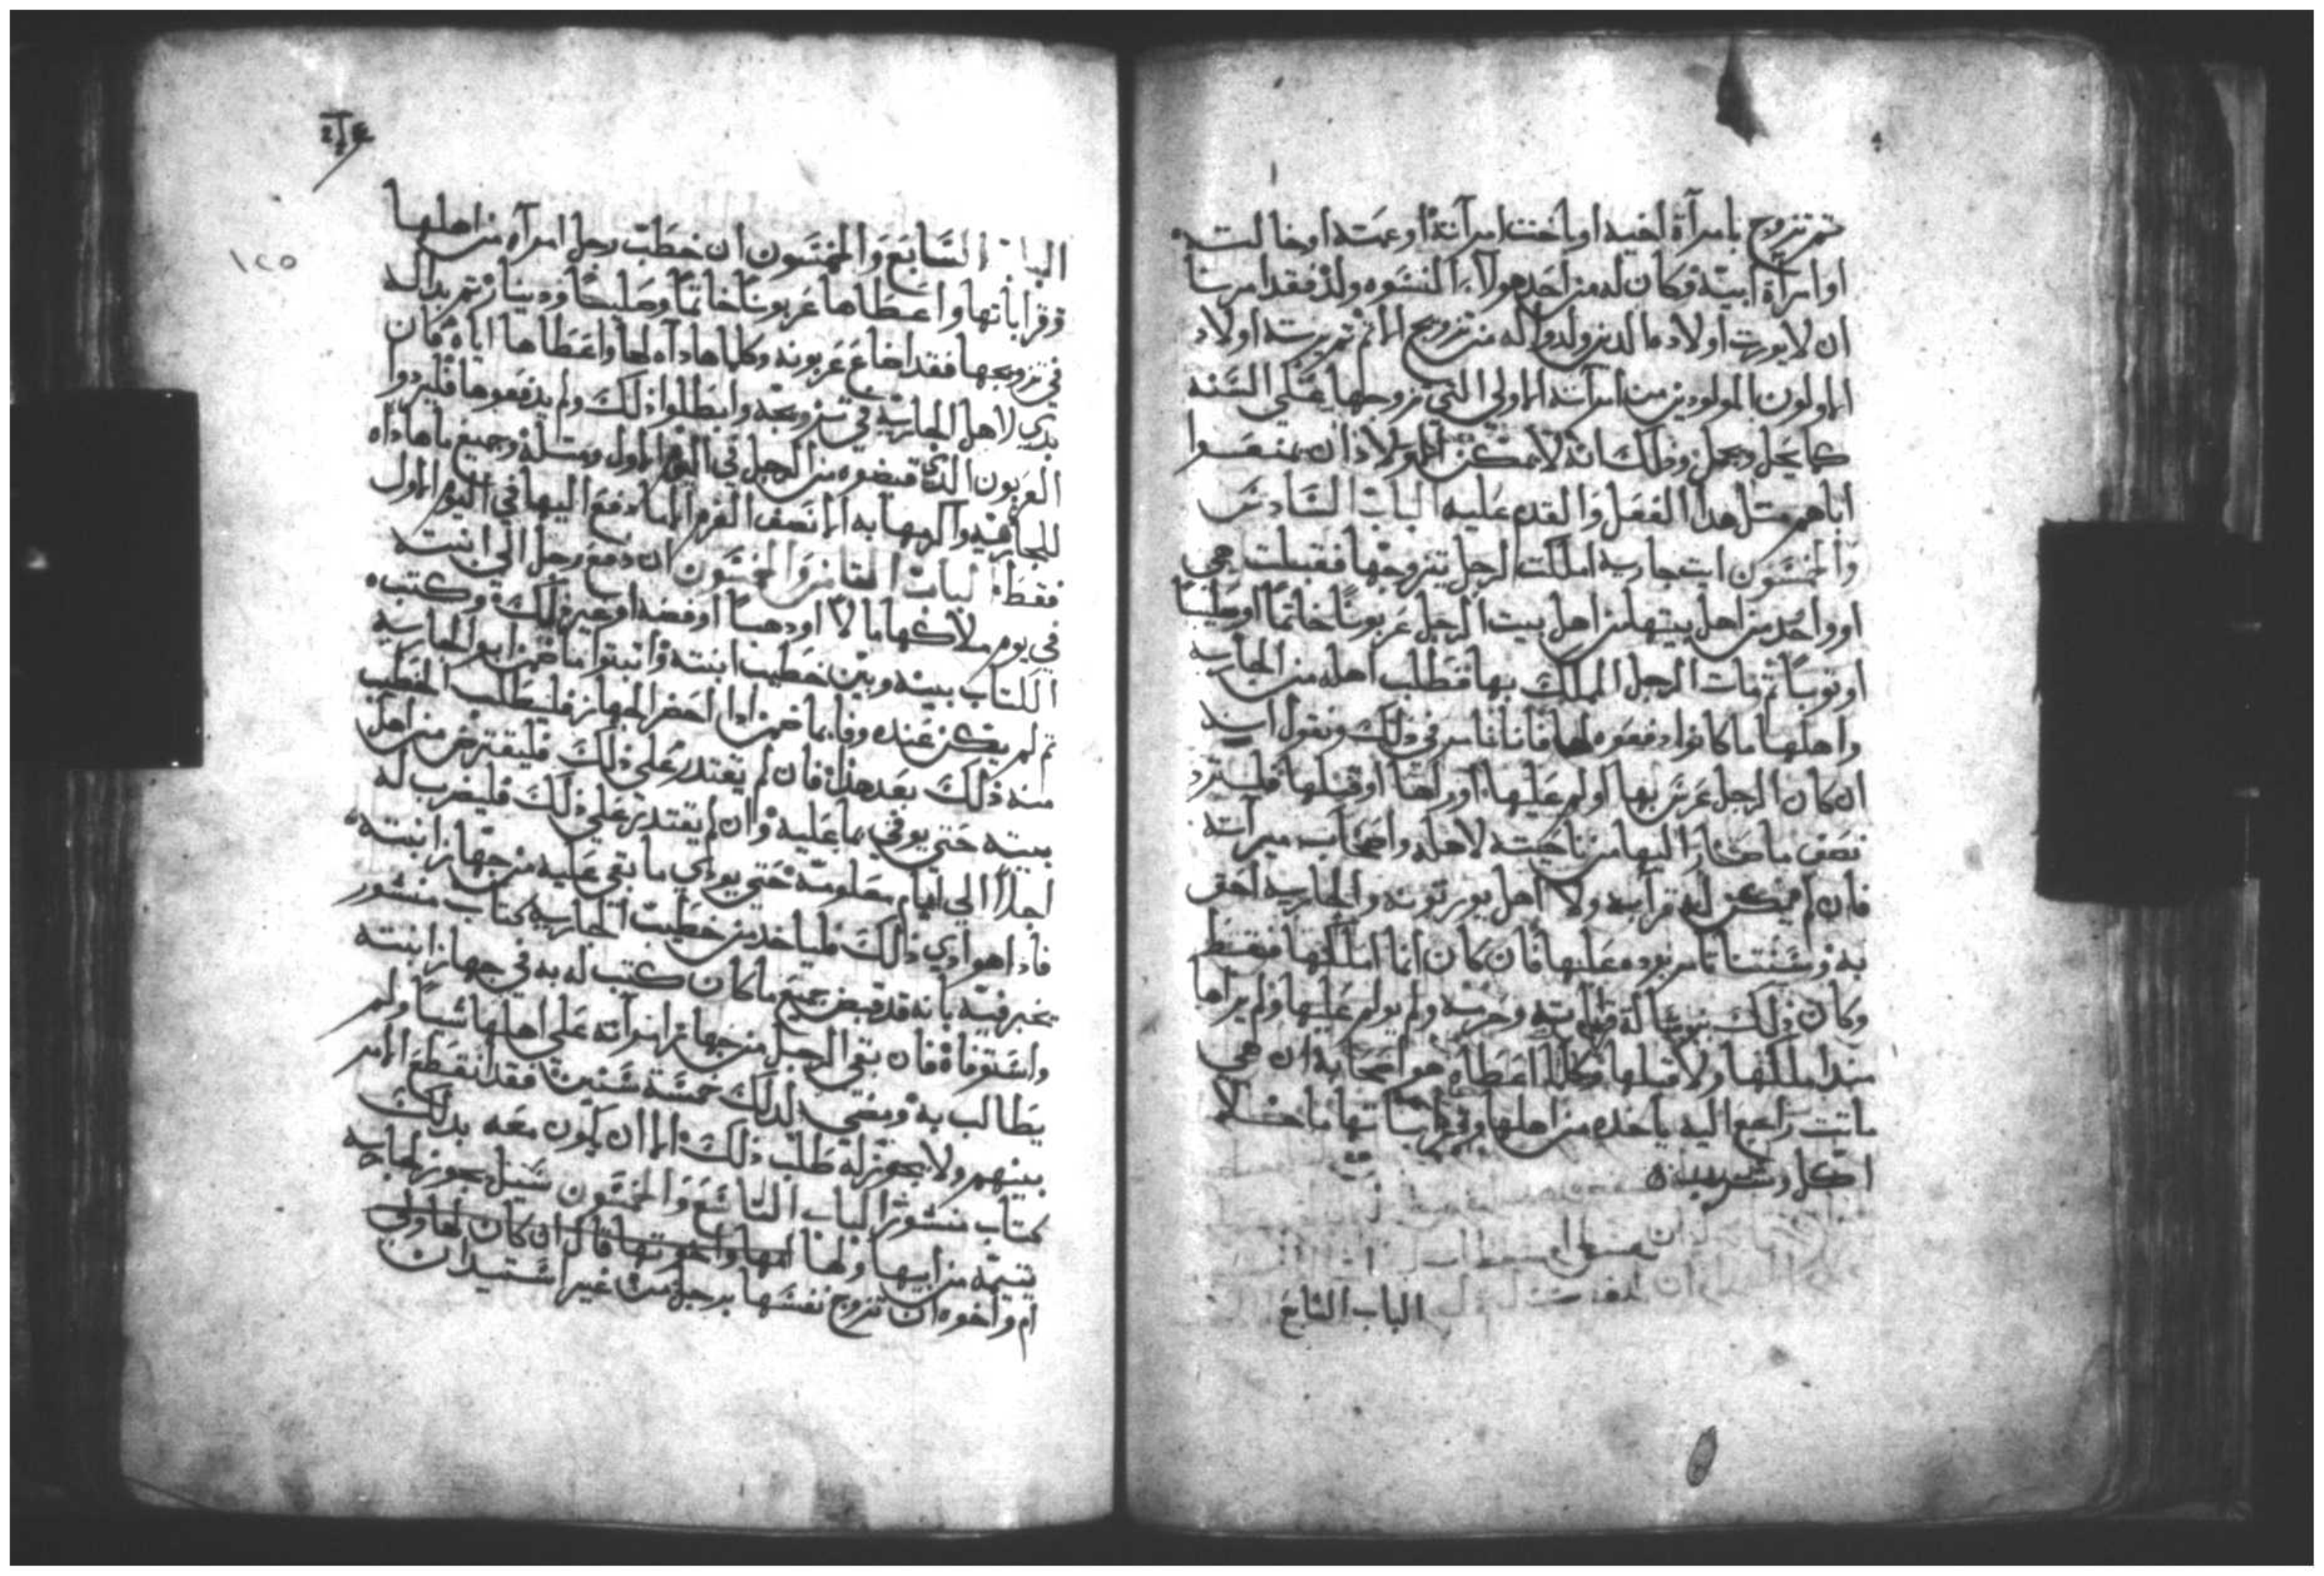 ثم تزوج بامرآة اخيه او باخت امرآته او عمته او خالته
او امرآة ابيه فكان له من احد هولاء النسوه ولد فقد امرنا
ان لا يورث اولاده الدين ولدوا له من تزويج الاثم ثم يرثه اولاده
الاولون المولودين من امرآته الاولى التي تزوجها على السنه
كما يحل ويجمل وذلك انه لا يمكن الاولاد ان يمنعوا
اباهم مثل هدا الفعل والقدم عليه الباب السادس
والخمسون ايت جاريه املكت لرجل يتزوجها فقبلت هي
او واحد من اهل بيتها من اهل بيت الرجل عربونا خاتما او صليبا
او ثوبا ثم مات الرجل المملك بها فطلب اهله من الجاريه
واهلها ما كانوا دفعوه لها فاننا نامر في ذلك ونقول انه
ان كان الرجل عزير بها او لم عليها او راها او قبلها فليسترد
نصف ما صار اليها من ناحيته لاهله واصحاب ميراثه
فان لم يكن له قرابه ولا اهل يورثونه والجاريه احق
به وسنتنا تامر بوده عليها فان كان انما املكها فقط
وكان ذلك برسالة قرابته وحرسه ولم يولم عليها ولم يراها
مند املكها ولا قبلها فكلما اعطاه هو اصحابه ان هي
ماتت راجع اليه ياخده من اهلها وقراباتها ما خلا
اكل وشرب
الباب السابع
١٢٥
الباب السابع والخمسون ان خطب رجل امرآه من اهلها
وقراباتها واعطاها عربونا خاتما وصليبا ودينار ثم بدا له
في تزويجها فقد اضاع عربونه وكلما هاداه لها واعطاها اياه فان
بدي لاهل الجاريه في تزويجه وابطلوا ذلك ولم يدفعوها فليردوا
العربون الذي قبضوه من الرجل في اليوم الاول ومثله وجميع ما هاداه
للجاريه واكرمها به الا نصف الغرم الما دفع اليها في اليوم الاول
فقط الباب الثامن والخمسون ان دفع رجل الى ابنته
في يوم ملاكها مالا او دهبا او فضه او غير ذلك وكتبه
الكتاب بينه وبين خطيب ابنته واثبتوا ما ضمن ابو الجاريه
ثم لم يكن عنده وفا بما ضمن ادا احضر الجهاز فليطلب الخطيب
منه ذلك بعد هدا فان لم يقتدر على ذلك فليقترض من اهل
بيته حتى يوفي بما عليه وان لم يقتدر على ذلك فليضرب له
اجلا الى ايام معلومه حتى يودي ما بقي عليه من جهاز ابنته
فاذا هو ادي ذلك فلياخد من خطيب الجاريه كتاب منشور
يخبر فيه بانه قد قبض جميع ما كان كتب له به في جهاز ابنته
واستوفاه فان بقي الرجل من جهاز امرآته على اهلها شيا ولم
يطالب به ويمضي لدلك خمسة سنين فقد انقطع الامر
بينهم ولا يجوز له طلب ذلك الا ان يكون معه بدلك
كتاب منشور الباب التاسع والخمسون سيل يجوز لجاريه
يتيمه من ابيها ولها امها واخوتها قال ان كان لها ولي
ام واخوه ان تزوج نفسها برجل من غير استيدان